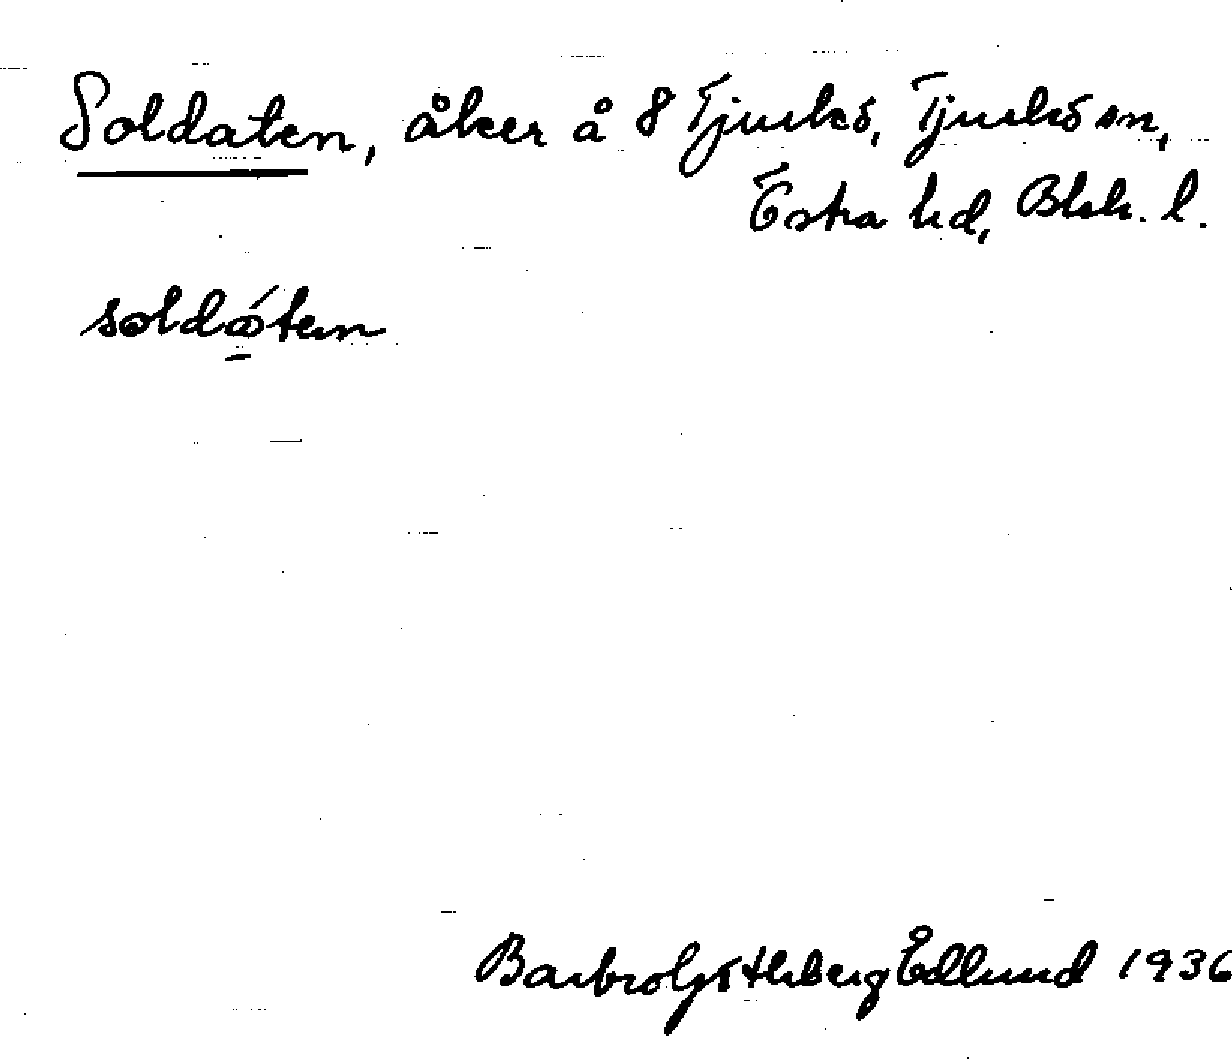 Soldaten, åker å 8 Tjurkö, Tjurkö sn,
Östra hd, Blek. l.
soldát̲en
Barbro Götheberg Edlund 1936